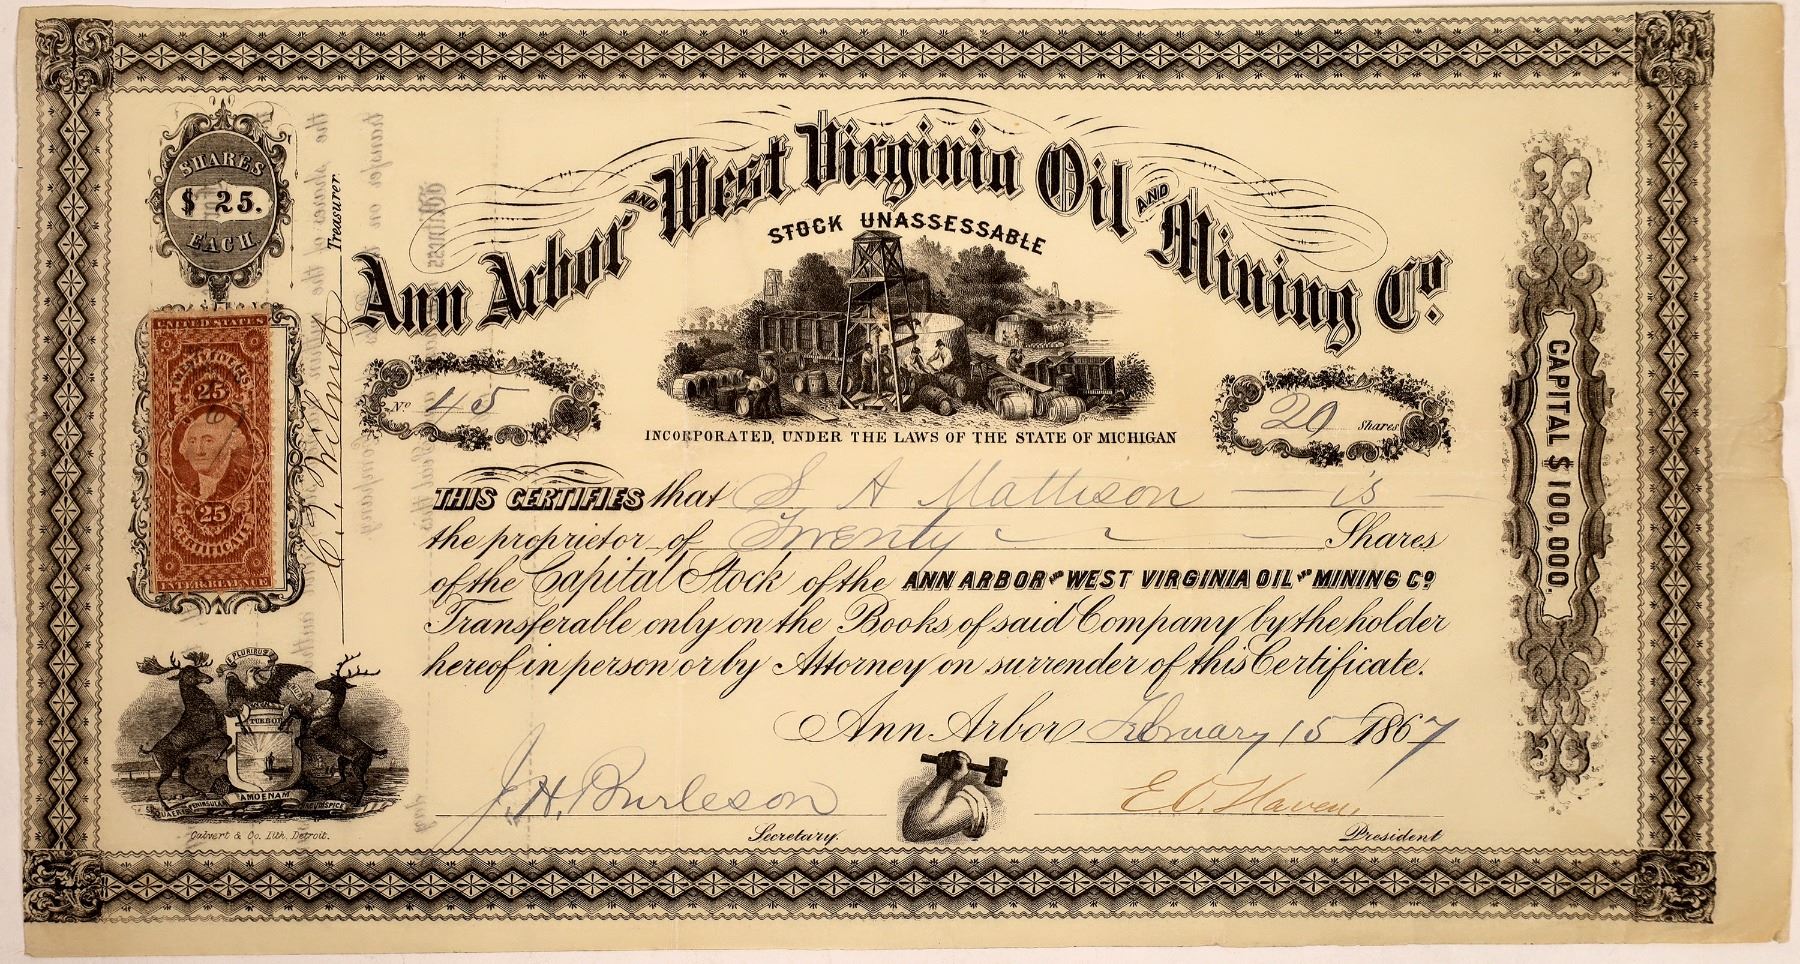 SHARES
$ 25.
EACH.
Treasurer.
UNITED STATES
25
25
CERTIFICATE
INTER. REVENUE
E PLURIBUS
TUEBOR
AMOENAM
CIRCUMSPICE
Calvert & Co. Lith. Detroit.
Ann Arbor AND West Virginia Oil AND Mining Co.
STOCK UNASSESSABLE
No 45
20 Shares
INCORPORATED, UNDER THE LAWS OF THE STATE OF MICHIGAN
THIS CERTIFIES that S A Mattison is
the proprietor of Twenty Shares
of the Capital Stock of the ANN ARBOR AND WEST VIRGINIA OIL AND MINING Co
Transferable only on the Books of said Company by the holder
hereof in person or by Attorney on surrender of this Certificate.
Ann Arbor February 15 1867
J. H. Burleson
Secretary.
E. O. Haven,
President
CAPITAL $100,000.